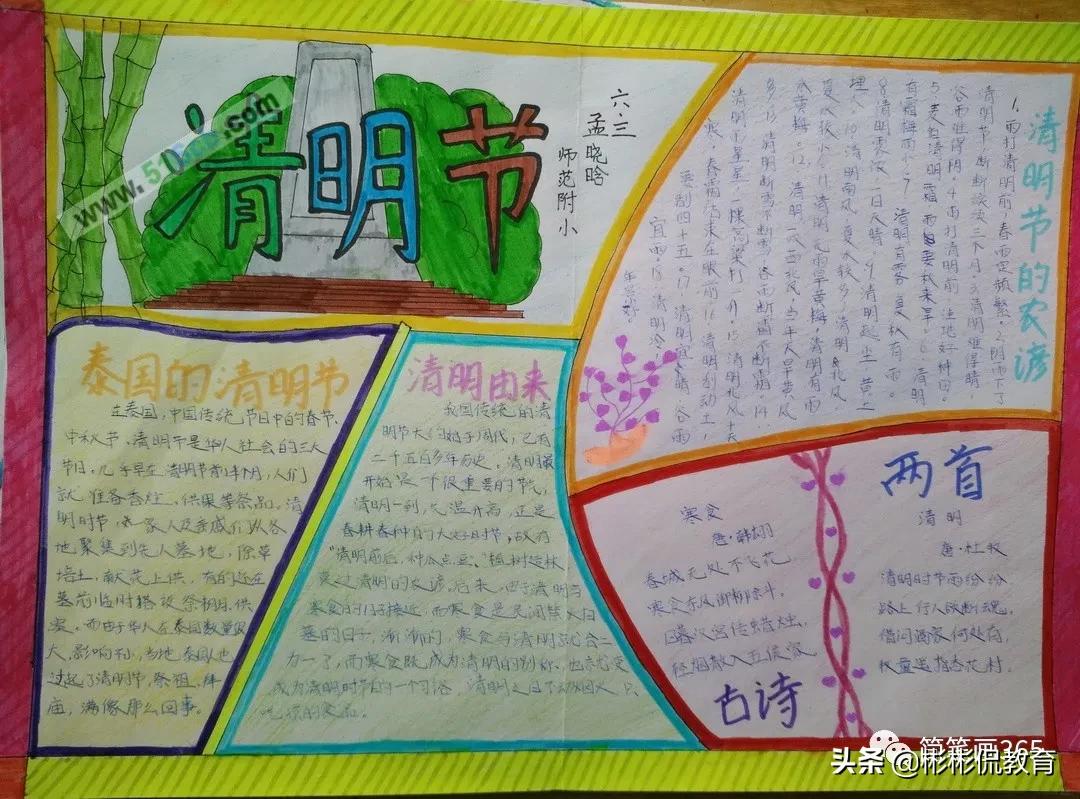 清明节
www.50
.com
六.三
孟晓晗
师范附小
清明节的农谚
1、雨打清明前，春雨定频繁。2.阴雨下了
清明节，断断续续三个月。3.清明难得晴，
谷雨难得阴。4.雨打清明前，洼地好种田。
5.麦怕清明霜，
有霜梅雨少。7.清明有雾，夏秋有雨。
8.清明雾浓，一日天晴。9.清明起尘，黄土
埋人。10.清明南风，夏水较多，清明北风，
夏水较少。11.清明无雨旱黄梅，清明有雨
水黄梅。12.清明一吹西北风，当年天旱黄风
多。13.清明断雪不断雪，谷雨断霜不断霜。14.
清明
要刮四十五。17.清明宜晴，谷雨
宜雨。18.清明冷，
年景好。
泰国的清明节
在泰国，中国传统节日中的春节、
中秋节、清明节是华人社会的三大
节日，几乎早在清明节前1个月，人们
就准备香烛、供果等祭品。清
明时节，一家人及亲戚们从各
地聚集到先人墓地，除草
培土，献花上供，有的还在
墓前临时搭设祭棚供
宴。而由于华人在泰国数量
大，影响
过起了清明节，祭祖、拜
庙，满像那么回事。
清明由来
我国传统的清
明节大约始于周代，已有
二千五百多年历史。清明最
开始是一个很重要的节气，
清明一到，气温升高，正是
春耕春种的大好时节，故有
"清明前后，种瓜点豆"、"植树造林，
莫过清明"的农谚。后来，由于清明与
寒食的日子接近，而寒食是民间禁火扫
墓的日子，渐渐的，寒食与清明就合二
为一了，而寒食既成为清明的别称，也变
成为清明时节的一个习俗，清明之日不动烟火，只
吃凉的食品。
两首
古诗
寒食
唐·韩翃
春城无处不飞花，
寒食东风御柳斜。
日暮汉宫传蜡烛，
轻烟散入五侯家
清明
唐·杜牧
清明时节雨纷纷
路上行人欲断魂，
借问酒家何处有，
牧童遥指杏花村。
简笔画365
头条 @彬彬侃教育